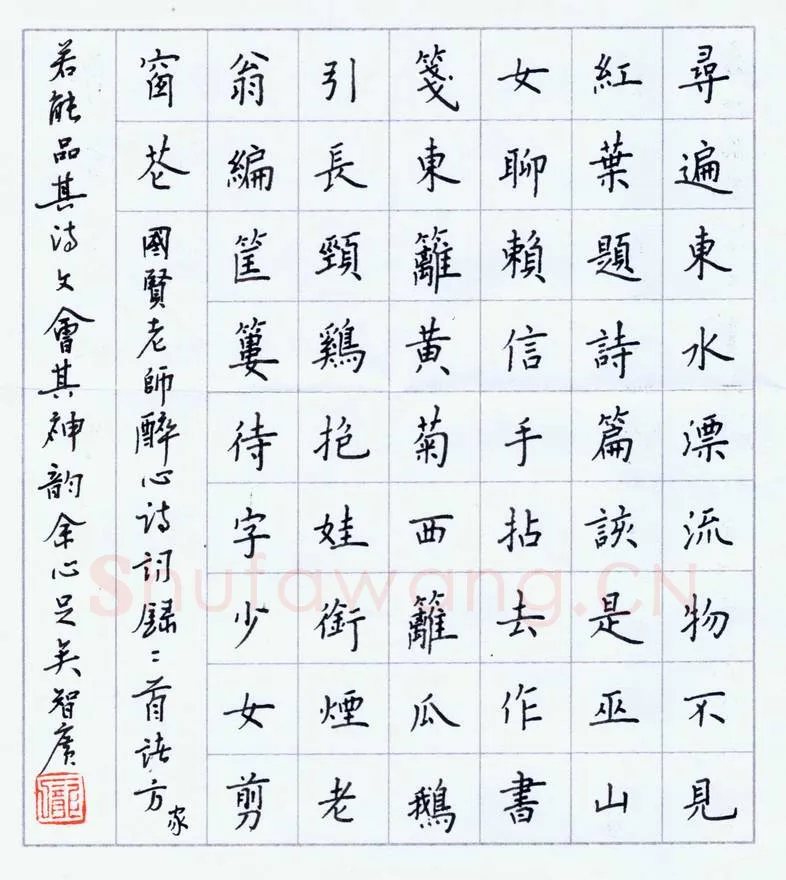 尋遍東水漂流物不見
紅葉題詩篇該是巫山
女聊賴信手拈去作書
箋東籬黃菊西籬瓜鵝
引長頸鷄抱娃銜煙老
翁編筐簍待字少女剪
窗花 國賢老師醉心诗詞録二首請方家
若能品其诗文會其神韵余心足矣智廣
Shufawang.CN